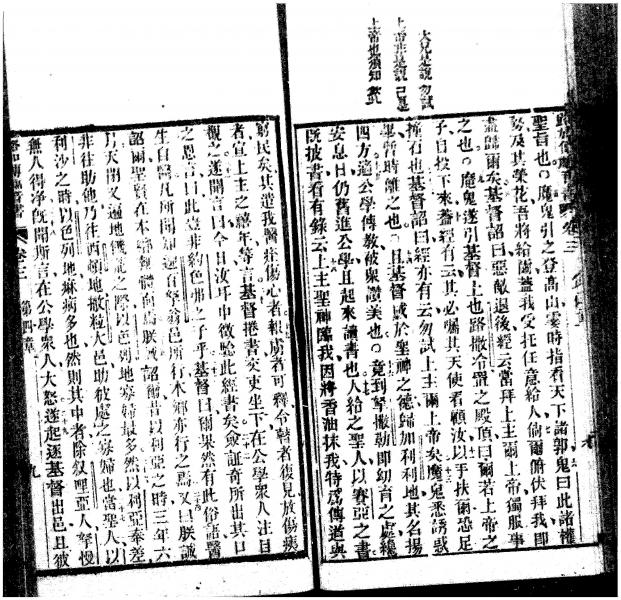 大兄是說勿試
上帝非是說己是
上帝也須知 欽此
聖旨也○魔鬼引之登高山霎時指看天下諸郭鬼曰此諸權
勢及其榮花吾將給爾蓋我受托任意給人倘爾俯伏拜我卽
盡歸爾矣基督詔曰惡敵退後經云當拜上主爾上帝獨服事
之也○魔鬼遂引基督上也路撒冷置之殿頂曰爾若上帝之
子自投下來蓋經有云其必囑其天使看顧汝以手扶爾恐足
撞石也基督詔曰經亦有云勿試上主爾上帝矣魔鬼悉誘惑
畢暫時離之也○且基督感於聖神之德歸加利利地其名揚
四方遍公學傳教被衆讚美也○竟到拏撒勒卽幼育之處纔
安息日仍舊進公學且起來讀書也人給之聖人以賽亞之書
旣披書看有錄云上主聖神臨我因將香油抹我特爲傳道與
窮民矣其遣我醫壯傷心者報虜者可釋令瞽者復見放傷痍
者宣上主之禧年等言基督捲書交吏坐下在公學衆人注目
觀之遂開言曰今日汝耳中徵驗此經書矣僉証奇所出其口
之恩言曰此豈非約色弗之子乎基督曰爾果然有此俗語醫
生自醫凡所聞加邏百拏翁邑所行本鄉亦行之焉又曰朕誠
詔爾聖賢在本鄉難體面焉朕誠詔爾昔以利亞之時三年六
月天閉又遍地饑荒之際以色列地寡婦最多然以利亞奉差
非往助他乃往西頓地撒粒大邑助彼處之寡婦也當聖人以
利沙之時以色列地痲病多也然則其中者除叙哩亞人拏慢
無人得净旣聞斯言在公學衆人大怒遂起逐基督出邑且彼
卷三 第四章 九